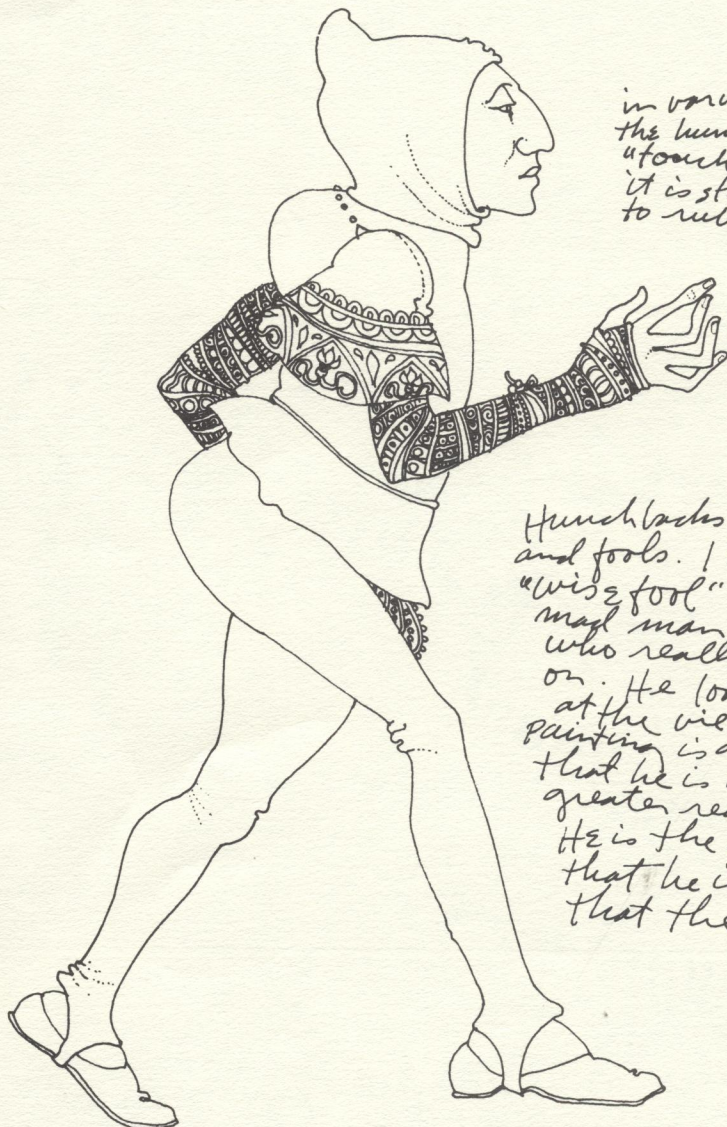 in var
the hun
"touch
it is st
to rub
Hunchbacks
and fools. I
"wise fool"
mad man
who reall
on. He loo
at the vie
painting is a
that he is
greater rea
He is the
that he i
that the